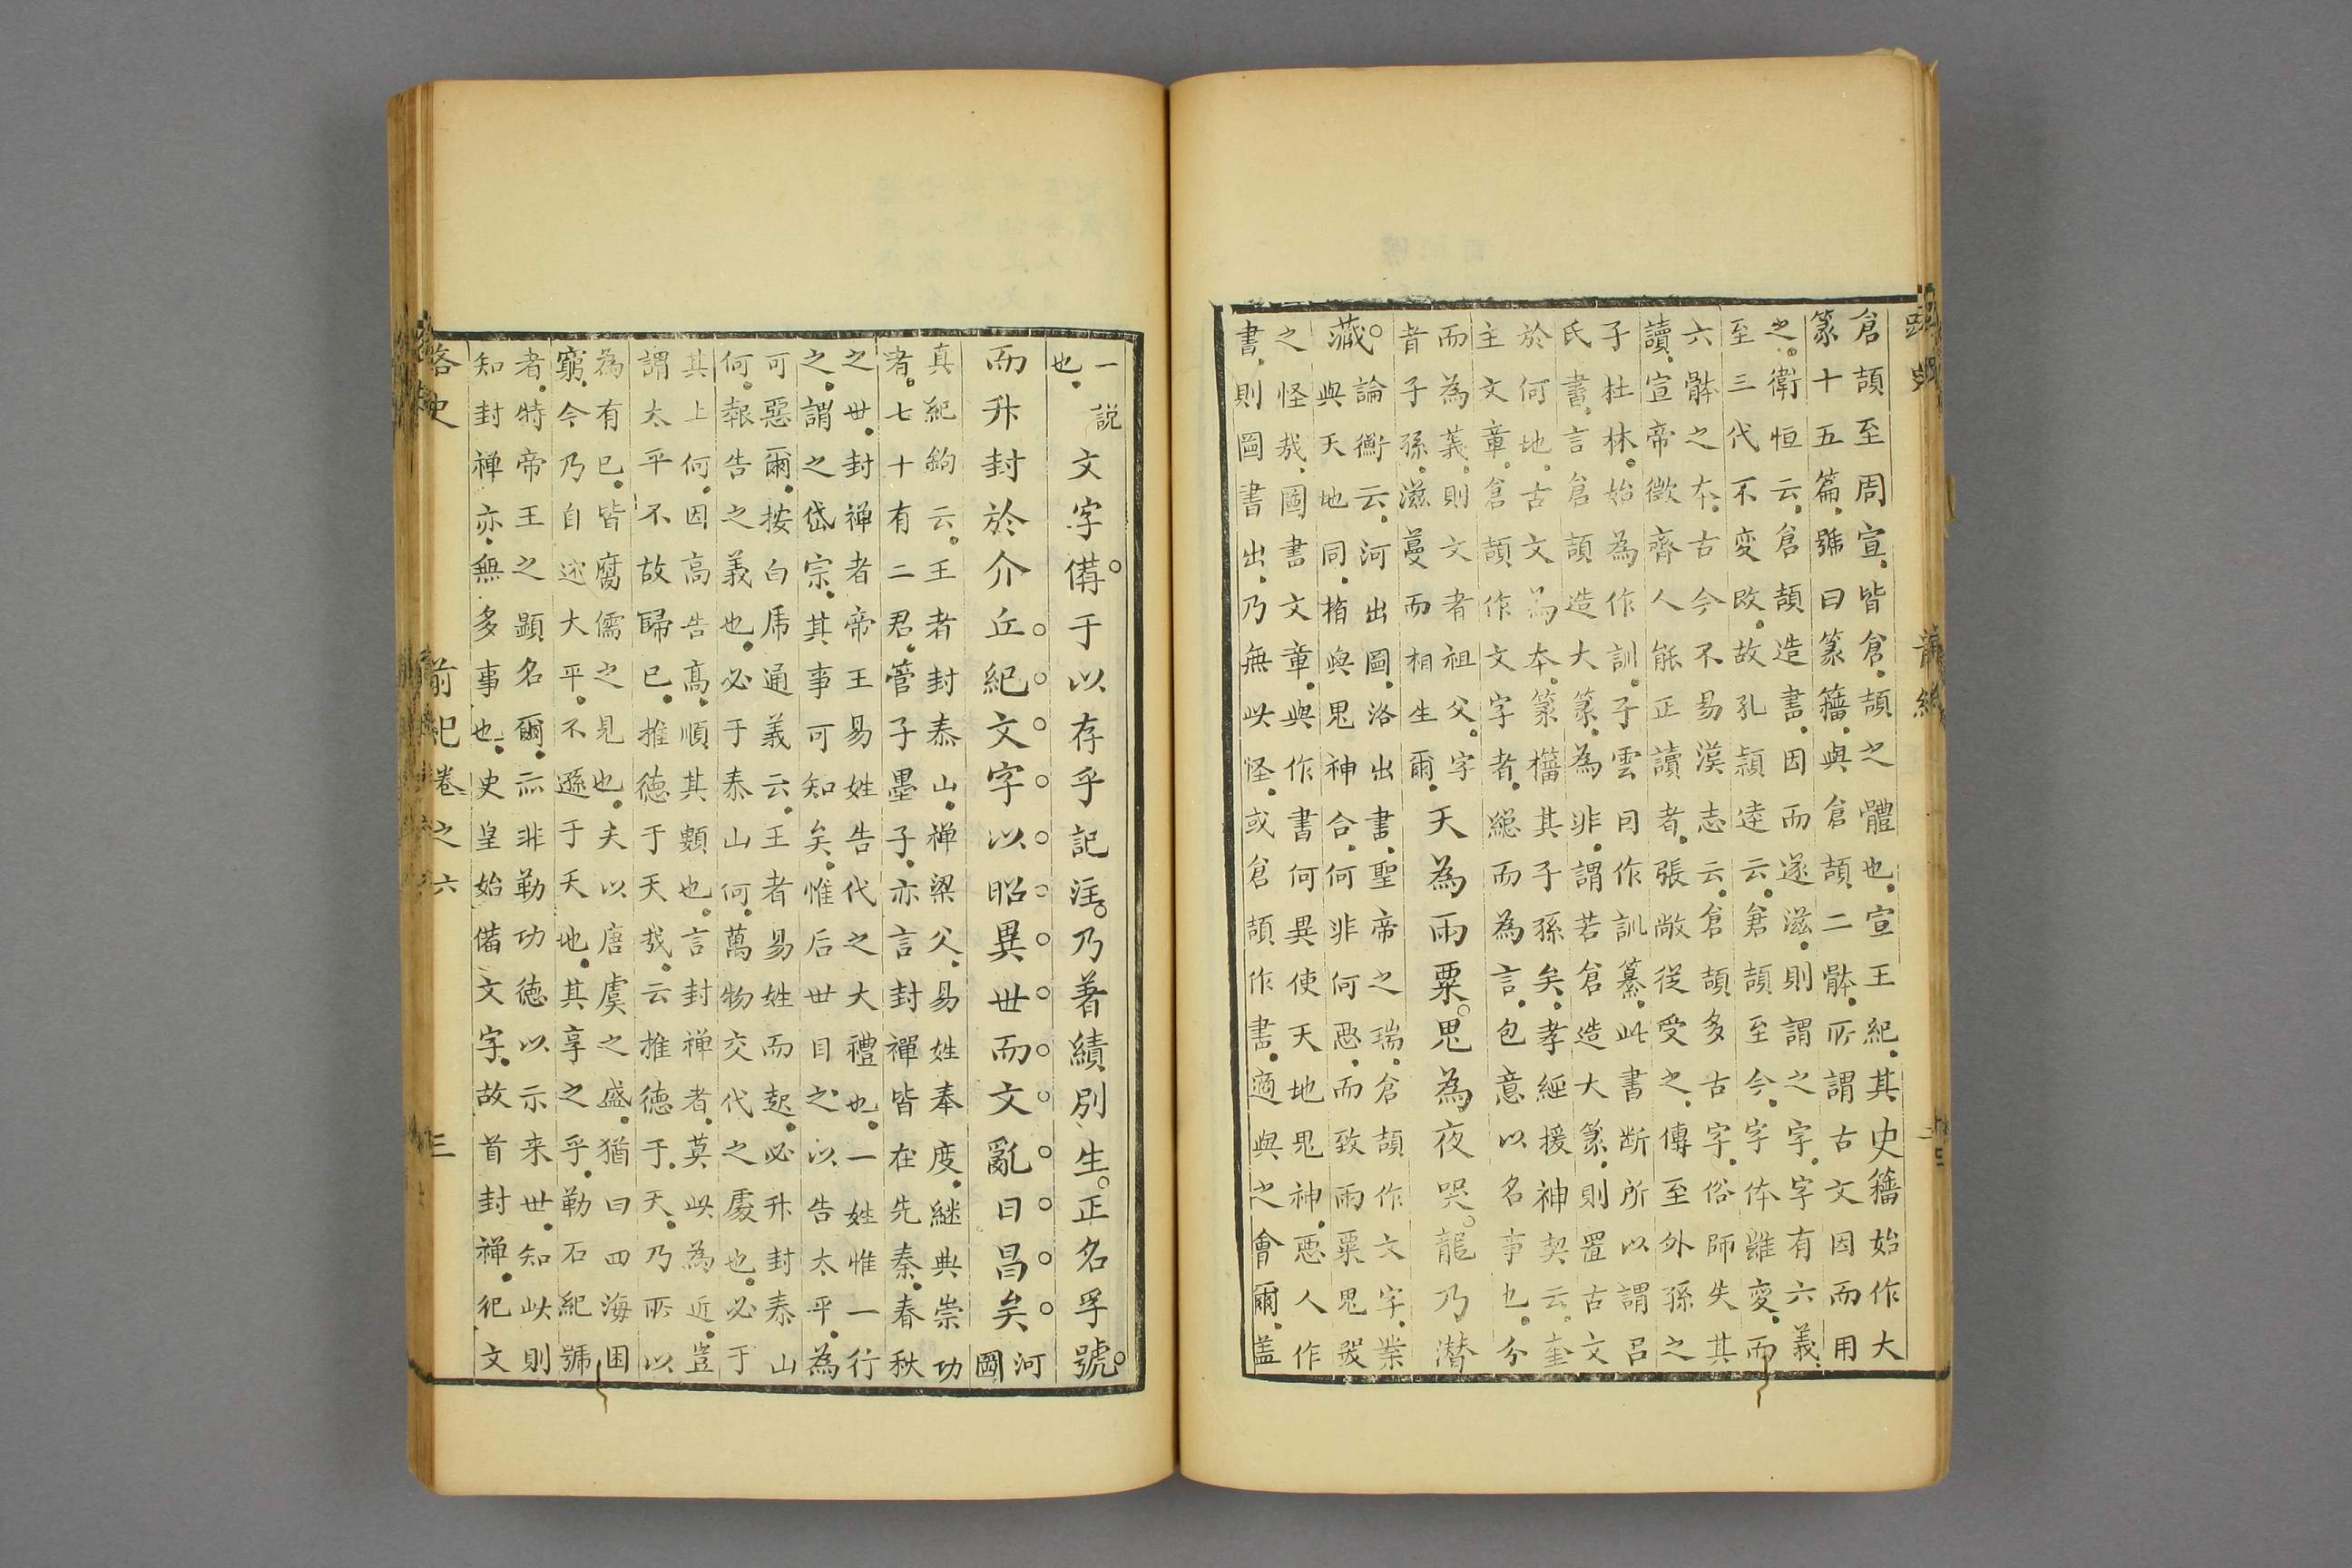 倉頡至周宣皆倉頡之體也宣王紀其史籀始作大
篆十五篇號曰篆籀與倉頡二骵所謂古文因而用
之衛恒云倉頡造書因而遂滋則謂之字字有六義
至三代不変改故孔頴逹云倉頡至今字体雖変而
六骵之本古今不易漢志云倉頡多古字俗師失其
讀宣帝徵齊人能正讀者張敞従受之傳至外孫之
子杜林始為作訓子雲同作訓纂此書斷所以謂呂
氏書言倉頡造大篆為非謂若倉造大篆則置古文
於何地古文為本篆籀其子孫矣孝經援神契云奎
主文章倉頡作文字者緫而為言包意以名事也分
而為義則文者祖父字
者子孫滋蔓而相生爾
天為雨粟鬼為夜哭龍乃潜
藏
論衡云河出圖洛出書聖帝之瑞倉頡作文字業
與天地同指與鬼神合何非何惡而致雨粟鬼哭
之怪哉圖書文章與作書何異使天地鬼神惡人作
書則圖書出乃無此怪或倉頡作書適與之會爾盖
一說
也
文字備于以存乎記注乃著績別生正名孚號
而升封於介丘紀文字以昭異世而文亂日昌矣
河
圖
真紀鉤云王者封泰山禅梁父易姓奉度継典崇功
者七十有二君管子墨子亦言封禪皆在先秦春秋
之世封禅者帝王易姓告代之大禮也一姓惟一行
之謂之岱宗其事可知矣惟后世目之以告太平為
可惡爾按白虎通義云王者易姓而起必升封泰山
何報告之義也必于泰山何萬物交代之處也必于
其上何因高告高順其類也言封禅者莫此為近豈
謂太平不故歸已推徳于天哉云推徳于天乃所以
為有已皆腐儒之見也夫以唐虞之盛猶曰四海困
窮今乃自述大平不遜于天地其享之乎勒石紀號
者特帝王之顕名爾亦非勒功徳以示来世知此則
知封禅亦無多事也史皇始備文字故首封禅祀文
路史
前紀卷之六
三